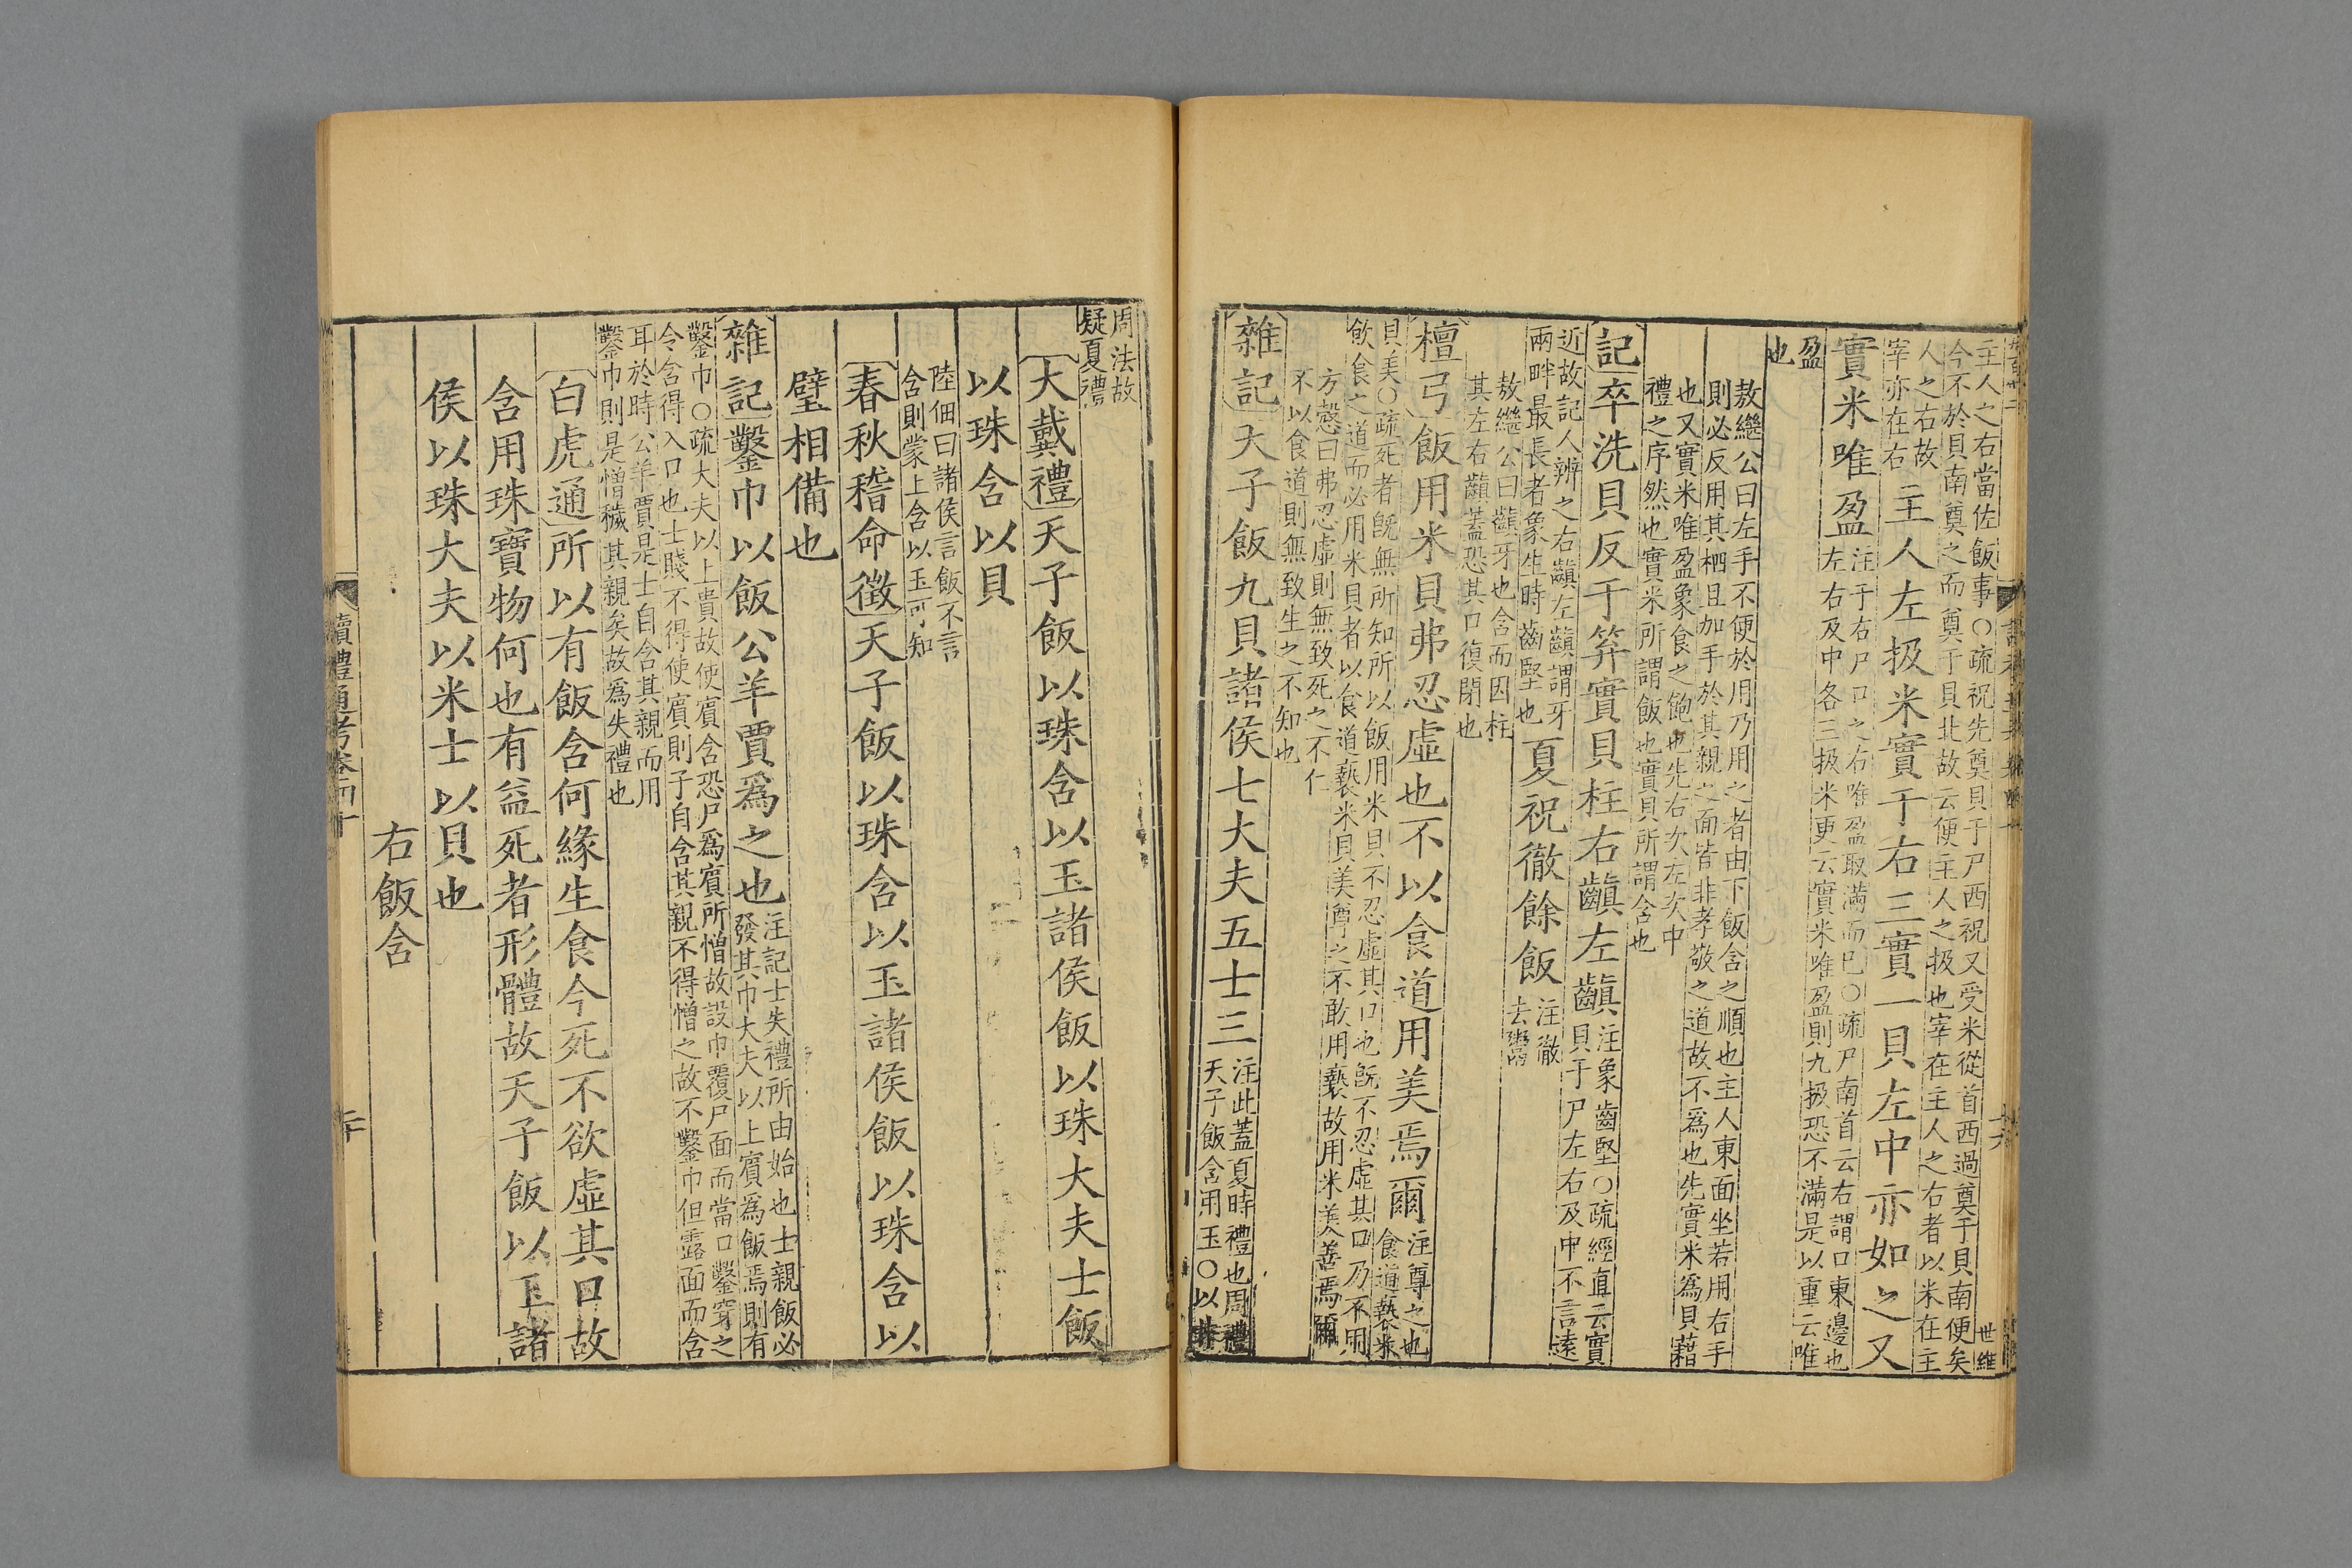 主人之右當佐飯事○疏祝先奠貝于尸西祝又受米從首西過奠于貝南便矣
今不於貝南奠之而奠于貝北故云便主人之扱也宰在主人之右者以米在主
人之右故
宰亦在右
主人左扱米實于右三實一貝左中亦如之又
實米唯盈
注于右尸口之右唯盈取滿而已○疏尸南首云右謂口東邊也
左右及中各三扱米更云實米唯盈則九扱恐不滿是以重云唯
盈
也
敖繼公曰左手不便於用乃用之者由下飯含之順也主人東面坐若用右手
則必反用其柶且加手於其親之面皆非孝敬之道故不為也先實米為貝藉
也又實米唯盈象食之飽也先右次左次中
禮之序然也實米所謂飯也實貝所謂含也
記卒洗貝反于笲實貝柱右齻左齻
注象齒堅○疏經直云實
貝于尸左右及中不言遠
近故記人辨之右齻左齻謂牙
兩畔最長者象生時齒堅也
夏祝徹餘飯
注徹
去鬻
敖繼公曰齻牙也含而因柱
其左右齻蓋恐其口復閉也
檀弓飯用米貝弗忍虛也不以食道用美焉爾
注尊之也
食道褻米
貝美○疏死者旣無所知所以飯用米貝不忍虛其口也旣不忍虛其口乃不用
飲食之道而必用米貝者以食道褻米貝美尊之不敢用褻故用米美善焉爾
方慤曰弗忍虛則無致死之不仁
不以食道則無致生之不知也
雜記天子飯九貝諸侯七大夫五士三
注此蓋夏時禮也周禮
天子飯含用玉○以非
周法故
疑夏禮
大戴禮天子飯以珠含以玉諸侯飯以珠大夫士飯
以珠含以貝
陸佃曰諸侯言飯不言
含則蒙上含以玉可知
春秋稽命徵天子飯以珠含以玉諸侯飯以珠含以
璧相備也
雜記鑿巾以飯公羊賈爲之也
注記士失禮所由始也士親飯必
發其巾大夫以上賓爲飯焉則有
鑿巾○疏大夫以上貴故使賓含恐尸爲賓所憎故設巾覆尸面而當口鑿穿之
令含得入口也士賤不得使賓則子自含其親不得憎之故不鑿巾但露面而含
耳於時公羊賈是士自含其親而用
鑿巾則是憎穢其親矣故爲失禮也
白虎通所以有飯含何緣生食今死不欲虛其口故
含用珠寶物何也有益死者形體故天子飯以玉諸
侯以珠大夫以米士以貝也
右飯含
讀禮通考卷四十